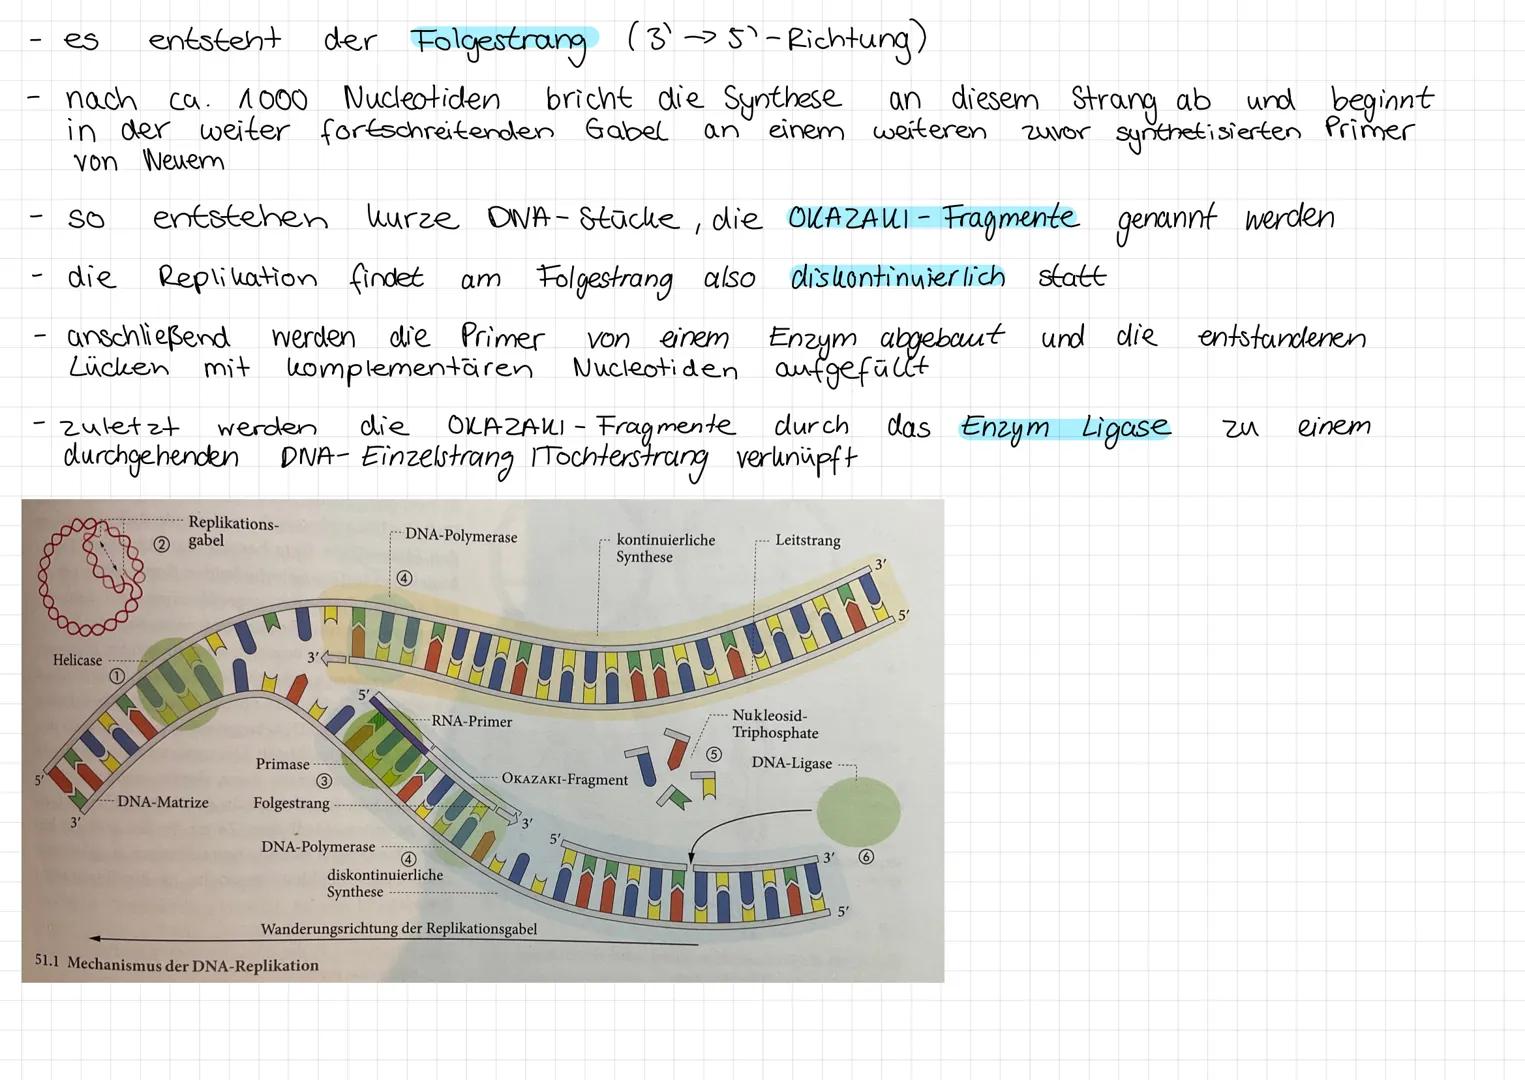 - es entsteht der Folgestrang (3' → 5'-Richtung)
- nach ca. 1000 Nucleotiden bricht die Synthese an diesem Strang ab und beginnt
in der weiter fortschreitenden Gabel an einem weiteren zuvor synthetisierten Primer
von Neuem
- so entstehen kurze DNA-Stücke, die OKAZAKI-Fragmente genannt werden
- die Replikation findet am Folgestrang also diskontinuierlich statt
- anschließend werden die Primer von einem Enzym abgebaut und die entstandenen
Lücken mit komplementären Nucleotiden aufgefüllt
- zuletzt werden die OKAZAKI-Fragmente durch das Enzym Ligase zu einem
durchgehenden DNA-Einzelstrang /Tochterstrang verknüpft
Replikations-
gabel
②
DNA-Polymerase
④
kontinuierliche
Synthese
Leitstrang
3'
5'
Helicase
①
3'
5'
RNA-Primer
Nukleosid-
Triphosphate
⑤
Primase
③
OKAZAKI-Fragment
DNA-Ligase
5'
DNA-Matrize
Folgestrang
3'
3'
DNA-Polymerase
④
5'
3'
⑥
diskontinuierliche
Synthese
5'
Wanderungsrichtung der Replikationsgabel
51.1 Mechanismus der DNA-Replikation